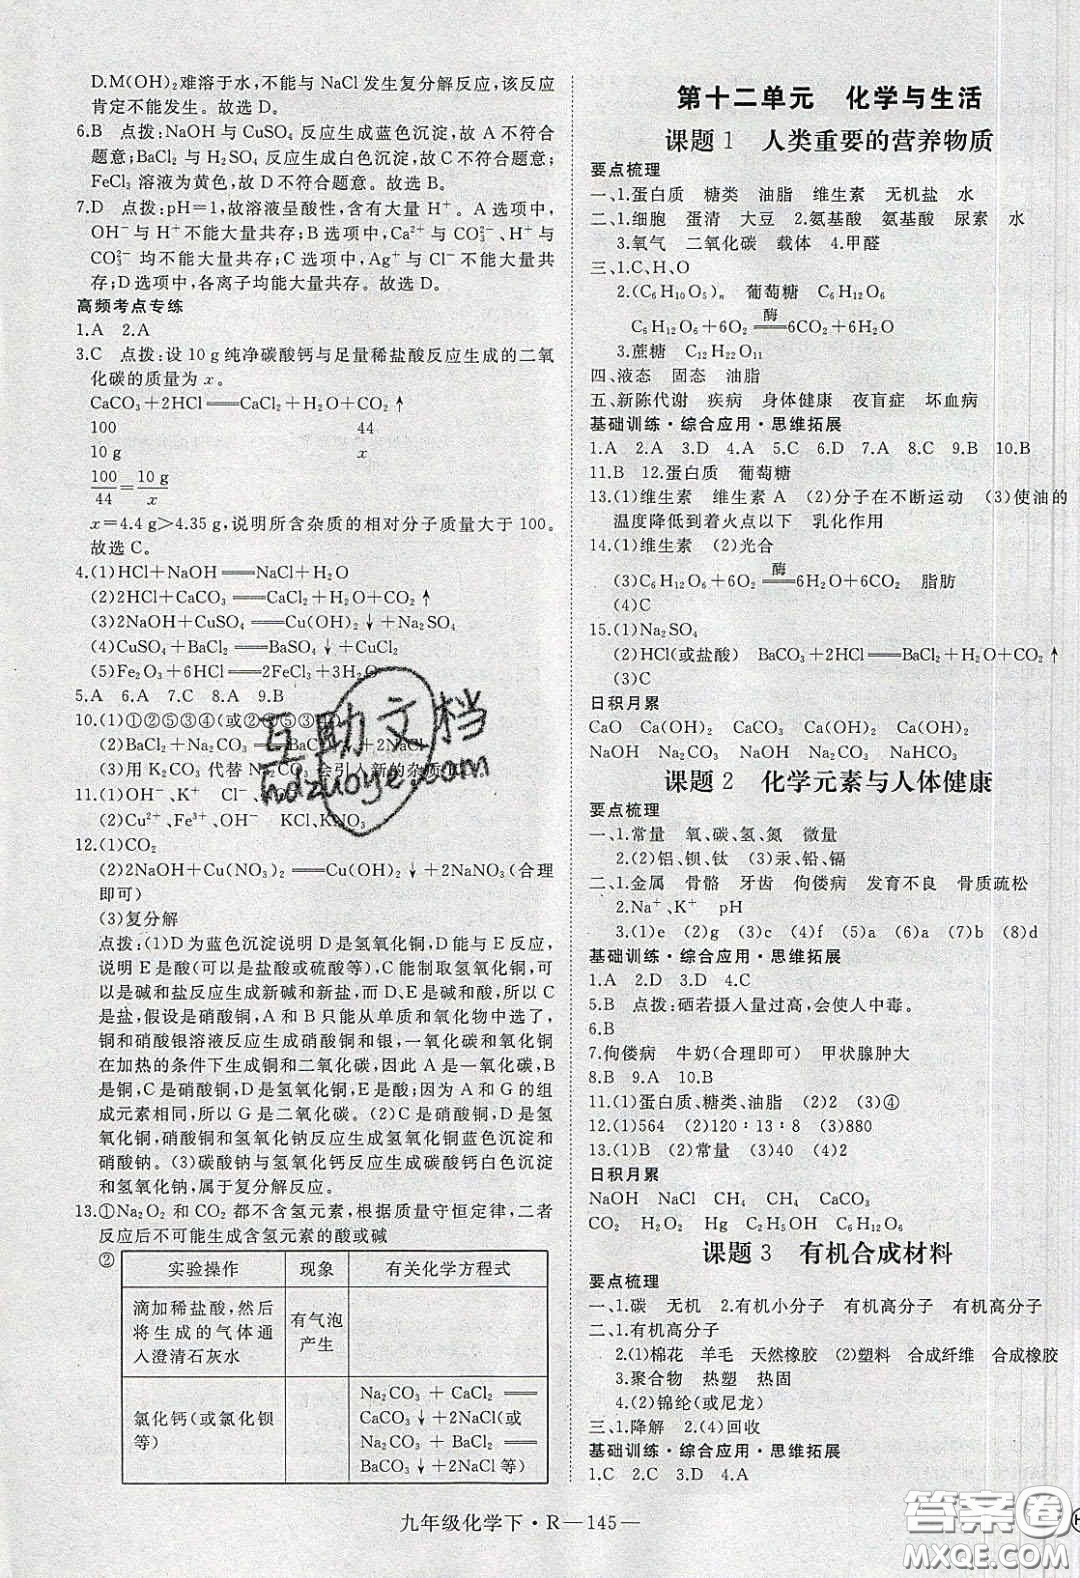 D.M(OH)₂难溶于水,不能与 NaCl 发生复分解反应,该反应
肯定不能发生。故选 D。
6.B 点拨:NaOH 与 CuSO₄ 反应生成蓝色沉淀,故 A 不符合
题意;BaCl₂ 与 H₂SO₄ 反应生成白色沉淀,故 C 不符合题意;
FeCl₃ 溶液为黄色,故 D 不符合题意。故选 B。
7.D 点拨:pH=1,故溶液呈酸性,含有大量 H⁺。A 选项中,
OH⁻与 H⁺不能大量共存;B 选项中,Ca²⁺与 CO₃²⁻、H⁺与
CO₃²⁻ 均不能大量共存;C 选项中,Ag⁺与 Cl⁻不能大量共
存;D 选项中,各离子间均能大量共存。故选 D。
高频考点专练
1.A 2.A
3.C 点拨:设 10 g 纯净碳酸钙与足量稀盐酸反应生成的二氧
化碳的质量为 x。
CaCO₃+2HCl══CaCl₂+H₂O+CO₂↑
100 44
10 g x
100/44=10 g/x
x=4.4 g>4.35 g,说明所含杂质的相对分子质量大于 100。
故选 C。
4.(1)HCl+NaOH══NaCl+H₂O
(2)2HCl+CaCO₃══CaCl₂+H₂O+CO₂↑
(3)2NaOH+CuSO₄══Cu(OH)₂↓+Na₂SO₄
(4)CuSO₄+BaCl₂══BaSO₄↓+CuCl₂
(5)Fe₂O₃+6HCl══2FeCl₃+3H₂O
5.A 6.A 7.C 8.A 9.B
10.(1)①②⑤③④(或②
(2)BaCl₂+Na₂CO₃══Ba
(3)用 K₂CO₃ 代替 Na₂CO₃ 会引入新的杂质
11.(1)OH⁻、K⁺ Cl⁻、
(2)Cu²⁺、Fe³⁺、OH⁻ KCl、KNO₃
12.(1)CO₂
(2)2NaOH+Cu(NO₃)₂══Cu(OH)₂↓+2NaNO₃(合理
即可)
(3)复分解
点拨:(1)D 为蓝色沉淀说明 D 是氢氧化铜,D 能与 E 反应,
说明 E 是酸(可以是盐酸或硫酸等),C 能制取氢氧化铜,可
以是碱和盐反应生成新碱和新盐,而 D、E 是碱和酸,所以 C
是盐,假设是硝酸铜,A 和 B 只能从单质和氧化物中选了,
铜和硝酸银溶液反应生成硝酸铜和银,一氧化碳和氧化铜
在加热的条件下生成铜和二氧化碳,因此 A 是一氧化碳,B
是铜,C 是硝酸铜,D 是氢氧化铜,E 是酸;因为 A 和 G 的组
成元素相同,所以 G 是二氧化碳。(2)C 是硝酸铜,D 是氢
氧化铜,硝酸铜和氢氧化钠反应生成氢氧化铜蓝色沉淀和
硝酸钠。(3)碳酸钠与氢氧化钙反应生成碳酸钙白色沉淀
和氢氧化钠,属于复分解反应。
13.①Na₂O₂ 和 CO₂ 都不含氢元素,根据质量守恒定律,二者
反应后不可能生成含氢元素的酸或碱
②
实验操作 现象 有关化学方程式
滴加稀盐酸,然后
将生成的气体通
入澄清石灰水
有气泡
产生
氯化钙(或氯化钡
等)
Na₂CO₃ + CaCl₂ ══
CaCO₃↓+2NaCl(或
Na₂CO₃ + BaCl₂ ══
BaCO₃↓+2NaCl 等)
第十二单元 化学与生活
课题 1 人类重要的营养物质
要点梳理
一、1.蛋白质 糖类 油脂 维生素 无机盐 水
二、1.细胞 蛋清 大豆 2.氨基酸 氨基酸 尿素 水
3.氧气 二氧化碳 载体 4.甲醛
三、1.C、H、O
2.(C₆H₁₀O₅)ₙ 葡萄糖 C₆H₁₂O₆
C₆H₁₂O₆+6O₂ ═酶═ 6CO₂+6H₂O
3.蔗糖 C₁₂H₂₂O₁₁
四、液态 固态 油脂
五、新陈代谢 疾病 身体健康 夜盲症 坏血病
基础训练·综合应用·思维拓展
1.A 2.A 3.D 4.A 5.C 6.D 7.A 8.C 9.B 10.B
11.B 12.蛋白质 葡萄糖
13.(1)维生素 维生素 A (2)分子在不断运动 (3)使油的
温度降低到着火点以下 乳化作用
14.(1)维生素 (2)光合
(3)C₆H₁₂O₆+6O₂ ═酶═ 6H₂O+6CO₂ 脂肪
(4)C
15.(1)Na₂SO₄
(2)HCl(或盐酸) BaCO₃+2HCl══BaCl₂+H₂O+CO₂↑
(3)C
日积月累
CaO Ca(OH)₂ CaCO₃ Ca(OH)₂ Ca(OH)₂
NaOH Na₂CO₃ NaOH Na₂CO₃ NaHCO₃
课题 2 化学元素与人体健康
要点梳理
一、1.常量 氧、碳、氢、氮 微量
2.(2)铝、钡、钛 (3)汞、铅、镉
二、1.金属 骨骼 牙齿 佝偻病 发育不良 骨质疏松
2.Na⁺、K⁺ pH
3.(1)e (2)g (3)c (4)f (5)a (6)b (7)a (8)d
基础训练·综合应用·思维拓展
1.A 2.D 3.D 4.C
5.B 点拨:硒若摄入量过高,会使人中毒。
6.B
7.佝偻病 牛奶(合理即可) 甲状腺肿大
8.B 9.A 10.B
11.(1)蛋白质、糖类、油脂 (2)2 (3)④
12.(1)564 (2)120∶13∶8 (3)880
13.(1)B (2)常量 (3)40 (4)2
日积月累
NaOH NaCl CH₄ CH₄ CaCO₃
CO₂ H₂O₂ Hg C₂H₅OH C₆H₁₂O₆
课题 3 有机合成材料
要点梳理
一、1.碳 无机 2.有机小分子 有机高分子 有机高分子
二、1.有机高分子
2.(1)棉花 羊毛 天然橡胶 (2)塑料 合成纤维 合成橡胶
3.聚合物 热塑 热固
4.(2)锦纶(或尼龙)
三、1.降解 2.(4)回收
基础训练·综合应用·思维拓展
1.C 2.C 3.D 4.A
九年级化学下·R—145—
互助文档
hdzuoye.com
答案圈
MXQE.COM